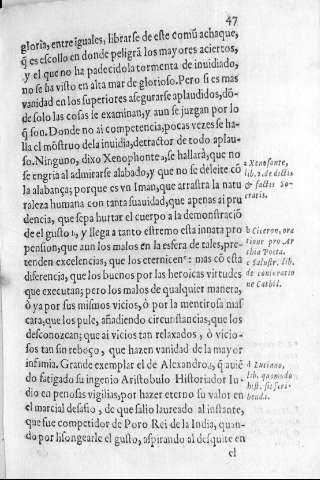 47
gloria, entre iguales, librarse de este comũ achaque,
q̃ es escollo en donde peligrã los mayores aciertos,
y el que no ha padecido la tormenta de inuidiado,
no se ha visto en alta mar de glorioso. Pero si es mas
vanidad en los superiores asegurarse aplaudidos, dõ-
de solo las cosas se examinan, y aun se juzgan por lo
q̃ son. Donde no ai competencia, pocas vezes se ha-
lla el mõstruo de la inuidia, detractor de todo aplau-
so. Ninguno, dixo Xenophonte a, se hallarà, que no
se engria al admirarse alabado, y que no se deleite cõ
la alabança; porque es vn Iman, que arrastra la natu
raleza humana con tanta suauidad, que apenas ai pru
dencia, que sepa hurtar el cuerpo a la demonstraciõ
de el gusto b, y llega a tanto estremo esta innata pro
pension, que aun los malos en la esfera de tales, pre-
tenden excelencias, que los eternicen c: mas cõ esta
diferencia, que los buenos por las heroicas virtudes
que executan; pero los malos de qualquier manera,
ò ya por sus mismos vicios, ò por la mentirosa mas
cara, que los pule, añadiendo circunstancias, que los
desconozcan; que ai vicios tan relaxados, ò vicio-
sos tan sin reboço, que hazen vanidad de la mayor
infimia. Grande exemplar el de Alexandro d, q̃ auiē
do fatigado su ingenio Aristobulo Historiador In-
dio en penosas vigilias, por hazer eterno su valor en
el marcial desafio, de que salio laureado al instante,
que fue competidor de Poro Rei de la India, quan-
do por lisongearle el gusto, aspirando al desquite en
el
a Xenofonte,
lib. 2. de dictis
& factis So-
cratis.
b Ciceron, ora
tione pro Ar
chia Poeta.
c Salust. lib.
de coniuratio
ne Cathil.
d Luciano,
lib. quomodo
hist. sit scri-
benda.